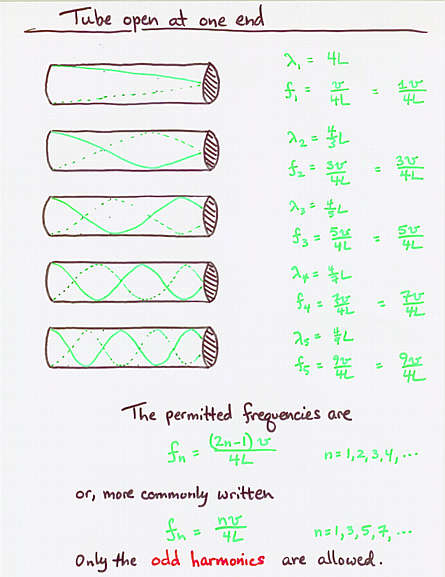 Tube open at one end
λ₁ = 4L
f₁ = v/4L = 1v/4L
λ₂ = 4/3 L
f₂ = 3v/4L = 3v/4L
λ₃ = 4/5 L
f₃ = 5v/4L = 5v/4L
λ₄ = 4/7 L
f₄ = 7v/4L = 7v/4L
λ₅ = 4/9 L
f₅ = 9v/4L = 9v/4L
The permitted frequencies are
fn = (2n-1) v/4L n = 1,2,3,4, ...
or, more commonly written
fn = nv/4L n = 1,3,5,7, ...
Only the odd harmonics are allowed.